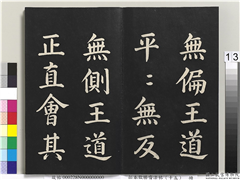 無偏王道
平〻無反
無側王道
正直會其
13